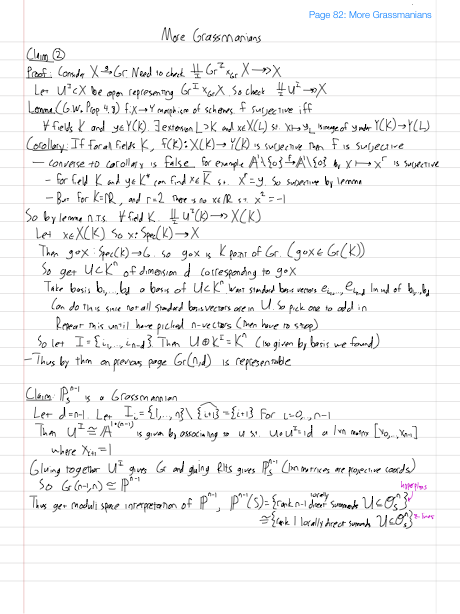 Page 82: More Grassmanians
More Grassmanians
Claim ②
Proof: Consider X →g Gr. Need to check ∐ Gr^I ×_Gr X ↠ X
Let U^I ⊂ X be open representing Gr^I ×_Gr X. So check ∐ U^I ↠ X
Lemma (G.W. Prop 4.8) f: X→Y morphism of schemes. f surjective iff
∀ fields K and y∈Y(K). ∃ extension L⊃K and x∈X(L) s.t. x↦y_L is image of y under Y(K)→Y(L)
Corollary: If for all fields K, f(K): X(K)→Y(K) is surjective then f is surjective
— converse to corollary is false. for example A^1\{0} →f A^1\{0} by x ↦ x^r is surjective
- for field K and y∈K^× can find x∈K̄ s.t. x^r=y. So surjective by lemma
- But for K=ℝ, and r=2 there is no x∈ℝ s.t. x^2=-1
So by lemma n.T.S. ∀ field K. ∐ U^I(K) ↠ X(K)
Let x∈X(K) so x: Spec(K)→X
Then g∘x: Spec(K)→G. so g∘x is K point of Gr. (g∘x∈Gr(K))
So get U⊂K^n of dimension d corresponding to g∘x
Take basis b_1,...,b_d a basis of U⊂K^n want standard basis vectors e_i1,..., e_in-d lin ind of b_1,...,b_d
Can do this since not all standard basis vectors are in U. So pick one to add in
Repeat this until have picked n-vectors (then have to stop)
So let I={i_1,...,i_n-d} Then U⊕K^I=K^n (iso given by basis we found)
- Thus by thm on previous page Gr(n,d) is representable
Claim: P_S^n-1 is a Grassmannian
Let d=n-1. Let I_i={1,...,n}\{i+1}={i+1} for i=0,...,n-1
Then U^I ≅ A^1•(n-1) is given by associating to u s.t. u∘u^I=id a 1×n matrix [x_0,...,x_n-1]
where x_i+1=1
Gluing together U^I gives G and gluing RHS gives P_S^n-1 (1×n matrices are projective coords)
So G(n-1,n) ≅ P^n-1
Thus get moduli space interpretation of P^n-1, P^n-1(S)={rank n-1 locally direct summands U⊆O_S^n} hyperplanes
≅{rank 1 locally direct summands U⊆O_S^n} lines